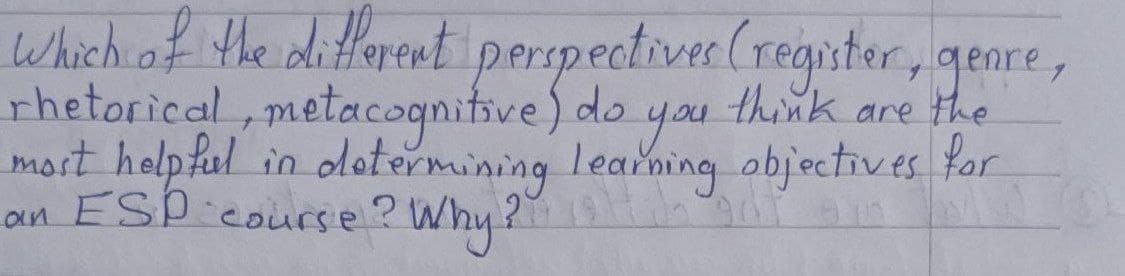 Which of the different perspectives (register, genre,
rhetorical, metacognitive) do you think are the
most helpful in determining learning objectives for
an ESP course? Why?